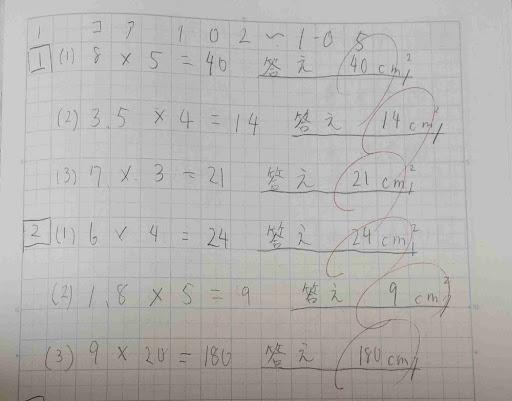 1 コア 102~105
1 (1) 8 × 5 = 40 答え 40cm²
(2) 3.5 × 4 = 14 答え 14cm²
(3) 7 × 3 = 21 答え 21cm²
2 (1) 6 × 4 = 24 答え 24cm²
(2) 1.8 × 5 = 9 答え 9cm²
(3) 9 × 20 = 180 答え 180cm²